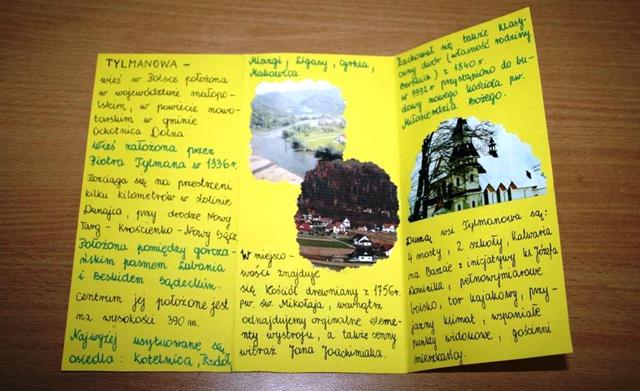 TYLMANOWA –
wieś w Polsce położona
w województwie małopo-
lskim, w powiecie nowo-
tarskim w gminie
Ochotnica Dolna.
Wieś założona przez
Piotra Tylmana w 1336r.
Rozciąga się na przestrzeni
kilku kilometrów w dolinie
Dunajca, przy drodze Nowy
Targ – Krościenko – Nowy Sącz.
Położona pomiędzy gorcza-
ńskim pasmem Lubania
i Beskidem Sądeckim.
Centrum jej położone jest
na wysokości 390 m.
Najwyżej usytuowane są
osiedla: Kotelnica,
Mastgi, Ligasy, Cyrhla,
Makowica
W miejsco-
wości znajduje
się kościół drewniany z 1756r.
pw. św. Mikołaja, wewnątrz
odnajdujemy orginalne eleme-
nty wystroju, a także cenny
witraż Jana Joachimiaka.
Zachował się także klasy-
czny dwór (własność rodziny
) z 1840 r.
w 1992 r przystąpiono do bu-
dowy nowego kościoła pw.
Miłosierdzia Bożego.
Dumą wsi Tylmanowa są:
4 mosty, 2 szkoły, Kalwaria
na Baszcie z inicjatywy ks. Józefa
Dominika, pełnowymiarowe
boisko, tor kajakowy, przy-
jazny klimat, wspaniałe
punkty widokowe, gościnni
mieszkańcy.